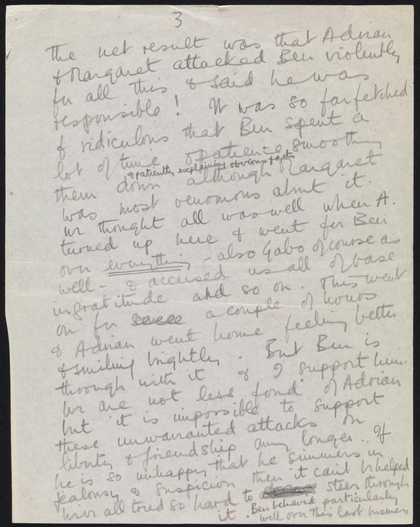 3
The net result was that Adrian
& Margaret attacked Ben violently
for all this & said he was
responsible! It was so farfetched
& ridiculous that Ben spent a
lot of time smoothing
& patiently explaining obvious facts
them down although Margaret
was most venomous about it.
We thought all was well when A.
turned up here & went for Ben
over everything – also Gabo of course as
well – & accused us all of base
ingratitude and so on. This went
on for a couple of hours
& Adrian went home feeling better
& smiling brightly. But Ben is
through with it & I support him.
We are not less fond of Adrian
but it is impossible to support
these unwarranted attacks on
liberty & friendship any longer. If
he is so unhappy that he simmers in
jealousy & suspicion then it can't be helped
We've all tried so hard to steer through
it. Ben behaved particularly
well over this last business